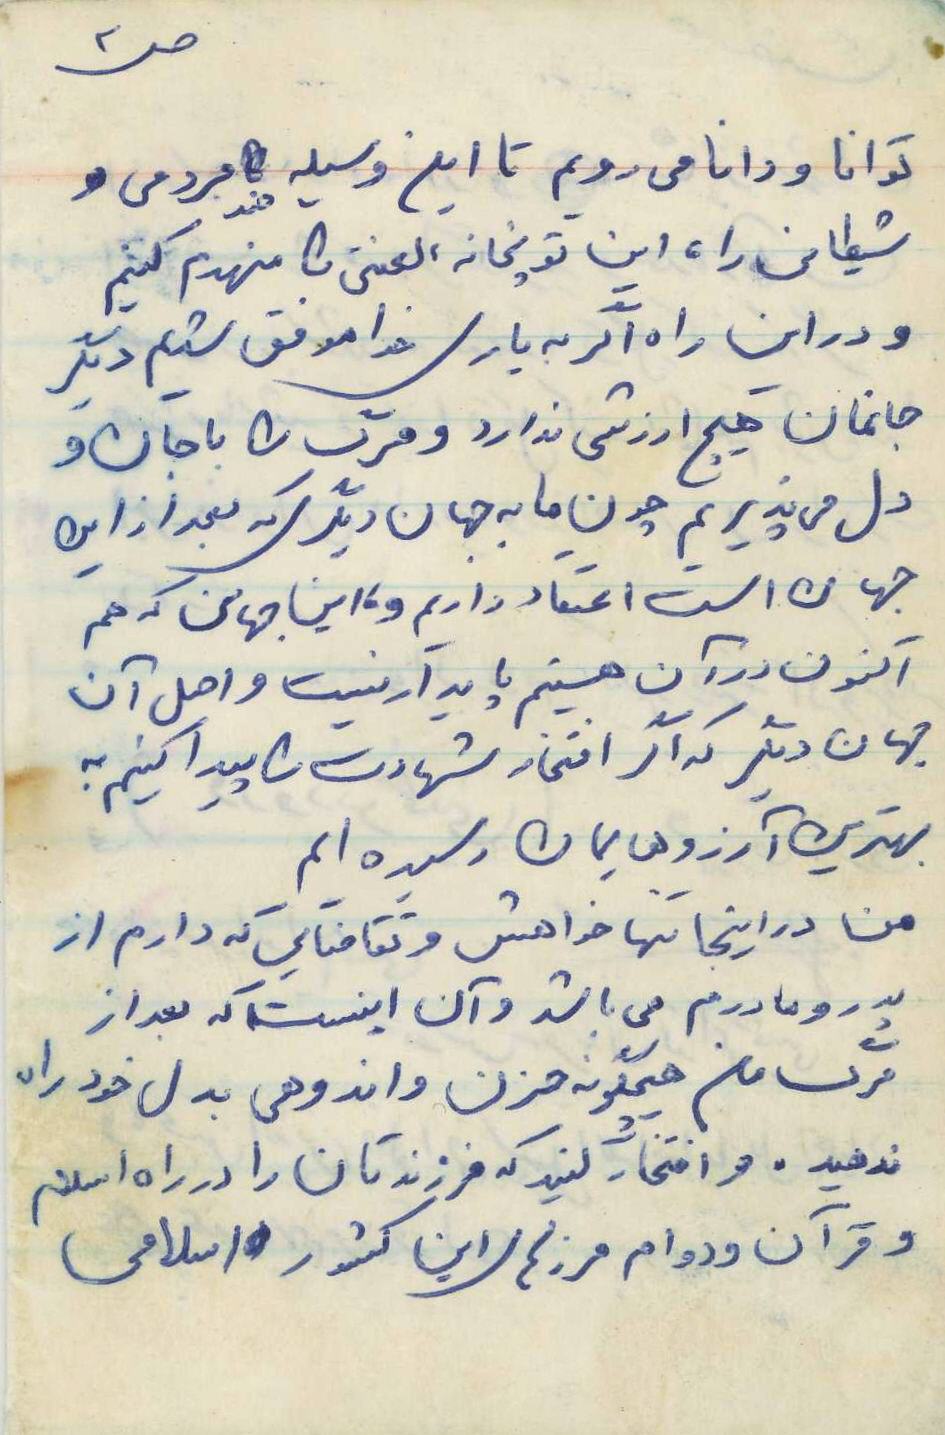 ص ۲
توانا و دانا می رویم تا این وسیله ضد مردمی و
شیطانی را، این توپخانه لعنتی را منهدم کنیم
و در این راه اگر به یاری خدا موفق شدیم دیگر
جانمان هیچ ارزشی ندارد و مرگ را با جان و
دل می پذیریم چون ما به جهان دیگری که بعد از این
جهان است اعتقاد داریم و این جهانی که هم
اکنون در آن هستیم پایدار نیست و اصل آن
جهان دیگر که اگر افتخار شهادت را پیدا کنیم به
بهترین آرزوهایمان رسیده ایم
من در اینجا تنها خواهش و تقاضایی که دارم از
پدر و مادرم می باشد و آن اینست که بعد از
مرگ من هیچگونه حزن و اندوهی بدل خود راه
ندهید. و افتخار کنید که فرزندتان را در راه اسلام
و قرآن و دوام مرزهای این کشور اسلامی